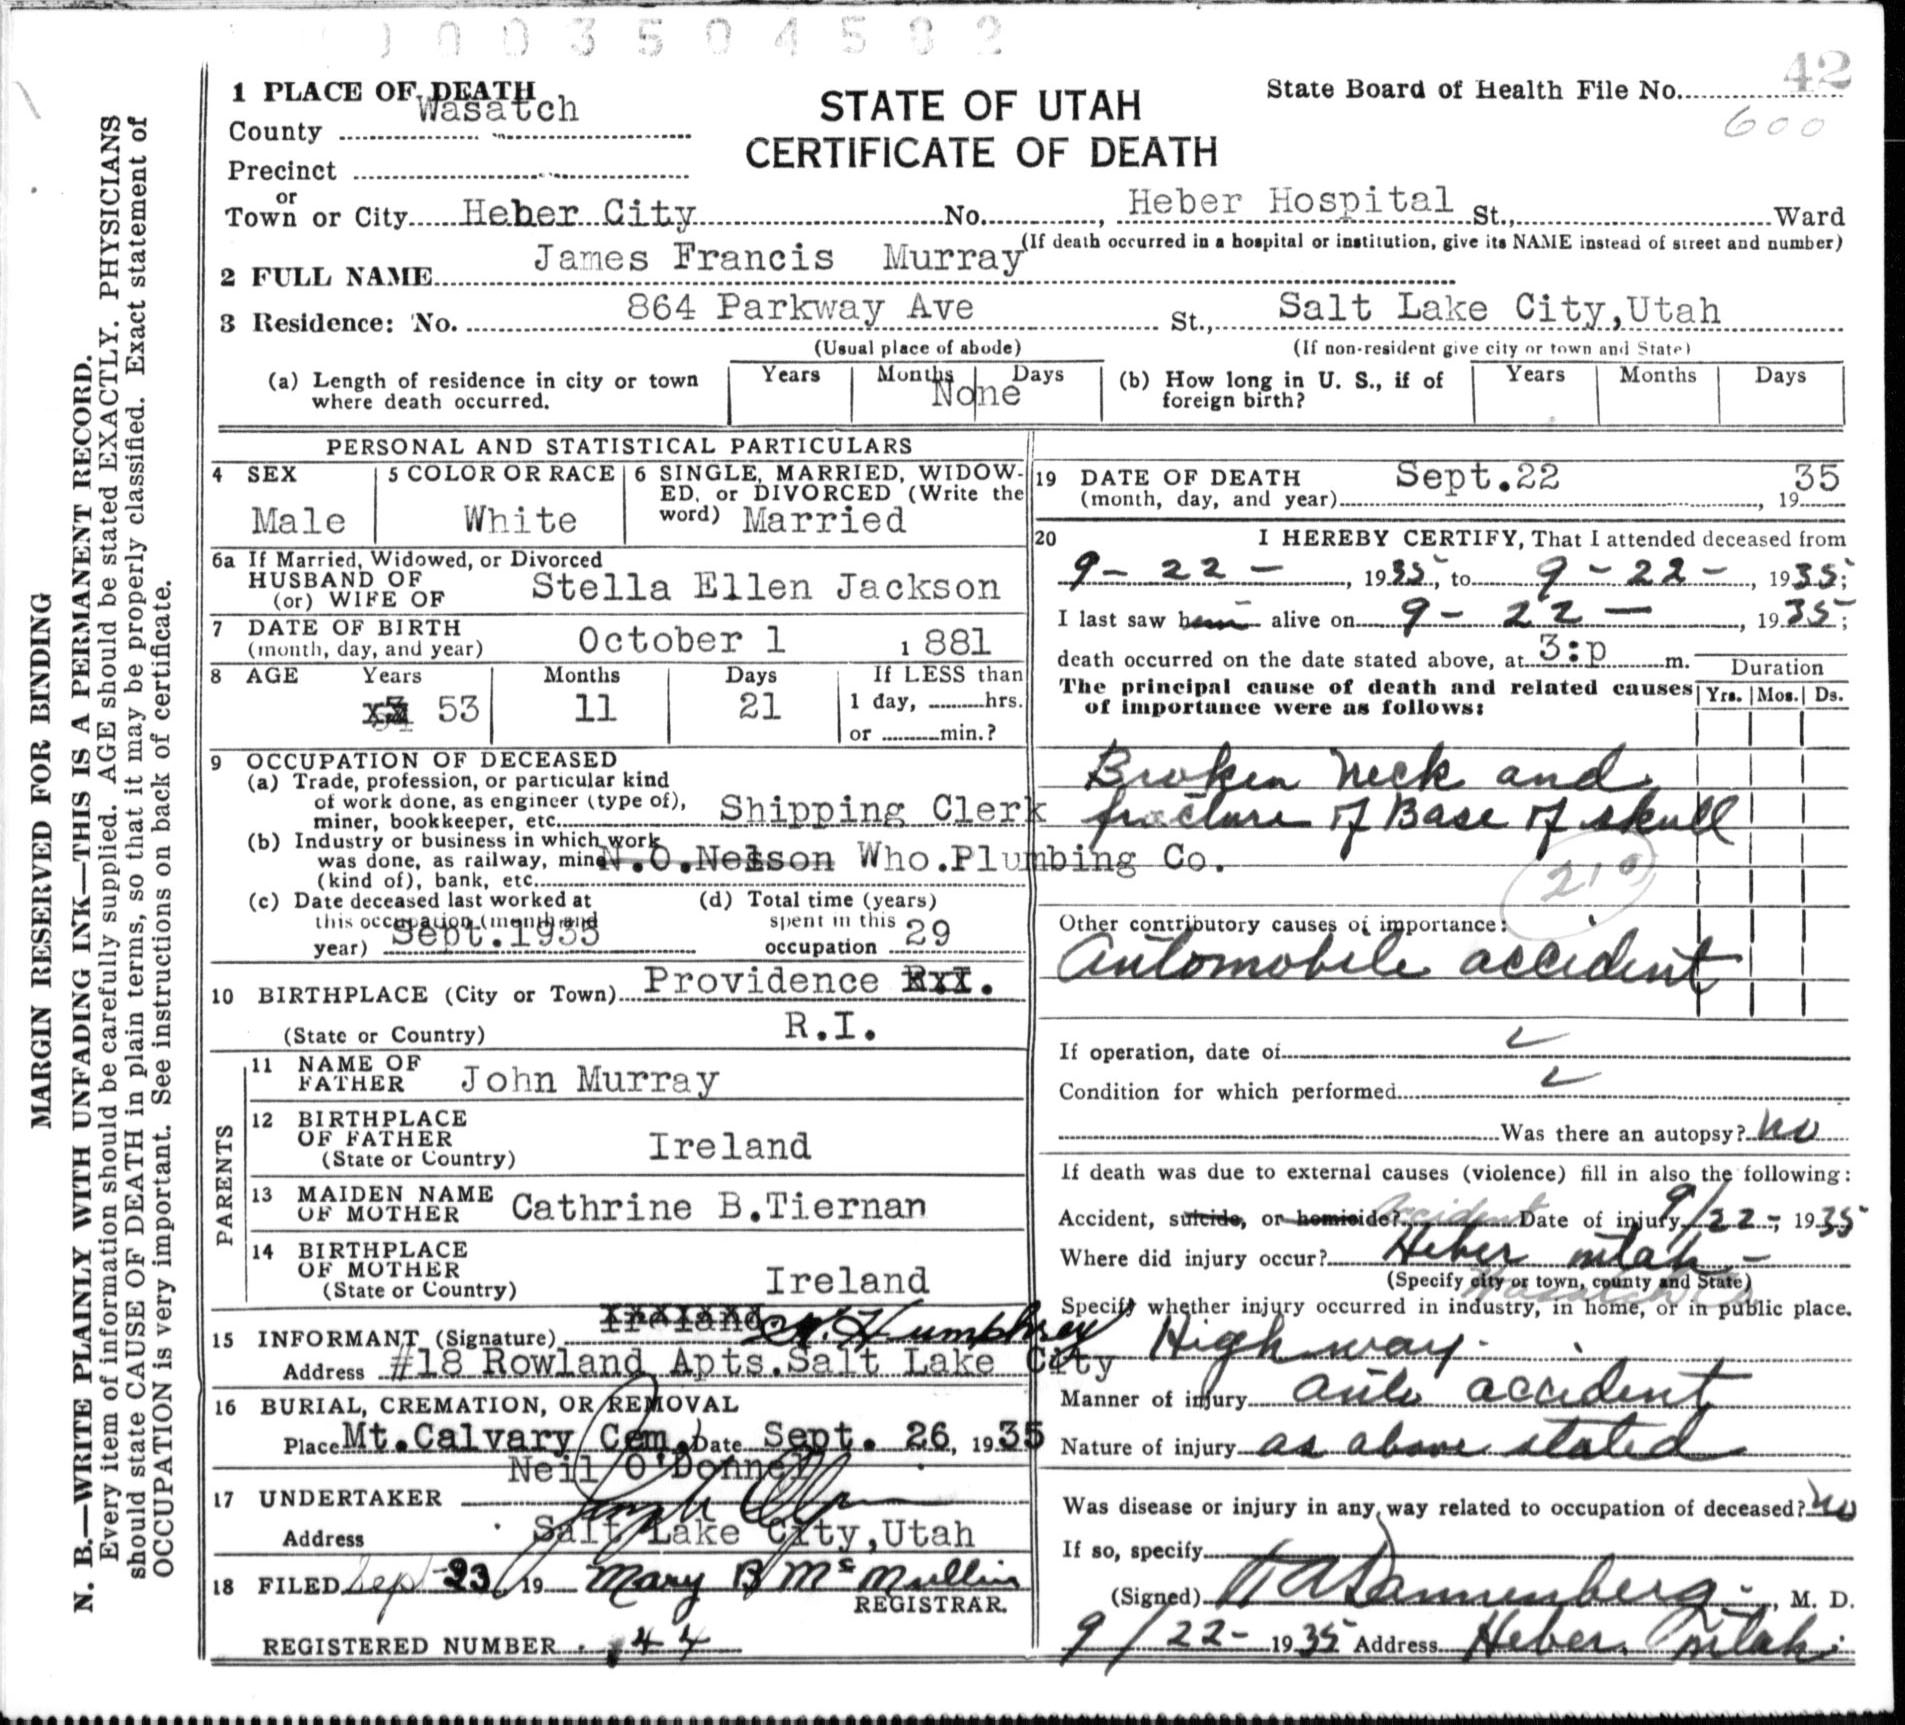 0003504582
42
1 PLACE OF DEATH
STATE OF UTAH
CERTIFICATE OF DEATH
State Board of Health File No.
600
County Wasatch
Precinct
or
Town or City Heber City No. , Heber Hospital St., Ward
(If death occurred in a hospital or institution, give its NAME instead of street and number)
2 FULL NAME James Francis Murray
3 Residence: No. 864 Parkway Ave St., Salt Lake City,Utah
(Usual place of abode) (If non-resident give city or town and State)
(a) Length of residence in city or town where death occurred. Years Months Days None
(b) How long in U. S., if of foreign birth? Years Months Days
PERSONAL AND STATISTICAL PARTICULARS
4 SEX Male
5 COLOR OR RACE White
6 SINGLE, MARRIED, WIDOW-
ED, or DIVORCED (Write the
word) Married
6a If Married, Widowed, or Divorced
HUSBAND OF
(or) WIFE OF Stella Ellen Jackson
7 DATE OF BIRTH
(month, day, and year) October 1 1881
8 AGE Years Months Days If LESS than
53 11 21 1 day, hrs.
or min.?
9 OCCUPATION OF DECEASED
(a) Trade, profession, or particular kind
of work done, as engineer (type of),
miner, bookkeeper, etc. Shipping Clerk
(b) Industry or business in which work
was done, as railway, mine N.O.Nelson Who.Plumbing Co.
(kind of), bank, etc.
(c) Date deceased last worked at
this occupation (month and
year) Sept.1935
(d) Total time (years)
spent in this
occupation 29
10 BIRTHPLACE (City or Town) Providence R.I.
(State or Country) R.I.
PARENTS
11 NAME OF
FATHER John Murray
12 BIRTHPLACE
OF FATHER
(State or Country) Ireland
13 MAIDEN NAME
OF MOTHER Cathrine B.Tiernan
14 BIRTHPLACE
OF MOTHER
(State or Country) Ireland
15 INFORMANT (Signature) Ireland Humphrey
Address #18 Rowland Apts.Salt Lake City
16 BURIAL, CREMATION, OR REMOVAL
Place Mt.Calvary Cem. Date Sept. 26, 1935
Neil O'Donnell
17 UNDERTAKER
Address Salt Lake City,Utah
18 FILED Sept 23, 19 Mary B McMullin
REGISTRAR.
REGISTERED NUMBER 44
19 DATE OF DEATH
(month, day, and year) Sept.22 , 1935
20 I HEREBY CERTIFY, That I attended deceased from
9-22-, 1935, to 9-22-, 1935;
I last saw him alive on 9-22-, 1935;
death occurred on the date stated above, at 3:p m.
Duration
The principal cause of death and related causes
of importance were as follows:
Yrs. Mos. Ds.
Broken neck and
fracture of Base of skull
210
Other contributory causes of importance:
Automobile accident
If operation, date of
Condition for which performed
Was there an autopsy? no
If death was due to external causes (violence) fill in also the following:
Accident, suicide, or homicide? Accident Date of injury 9/22-, 1935
Where did injury occur? Heber Utah-
(Specify city or town, county and State)
Wasatch
Specify whether injury occurred in industry, in home, or in public place.
Highway.
Manner of injury auto accident
Nature of injury as above stated
Was disease or injury in any way related to occupation of deceased? no
If so, specify
(Signed) Dannenberg, M. D.
9/22- 1935 Address Heber, Utah.
MARGIN RESERVED FOR BINDING
N. B.—WRITE PLAINLY WITH UNFADING INK—THIS IS A PERMANENT RECORD.
Every item of information should be carefully supplied. AGE should be stated EXACTLY. PHYSICIANS
should state CAUSE OF DEATH in plain terms, so that it may be properly classified. Exact statement of
OCCUPATION is very important. See instructions on back of certificate.